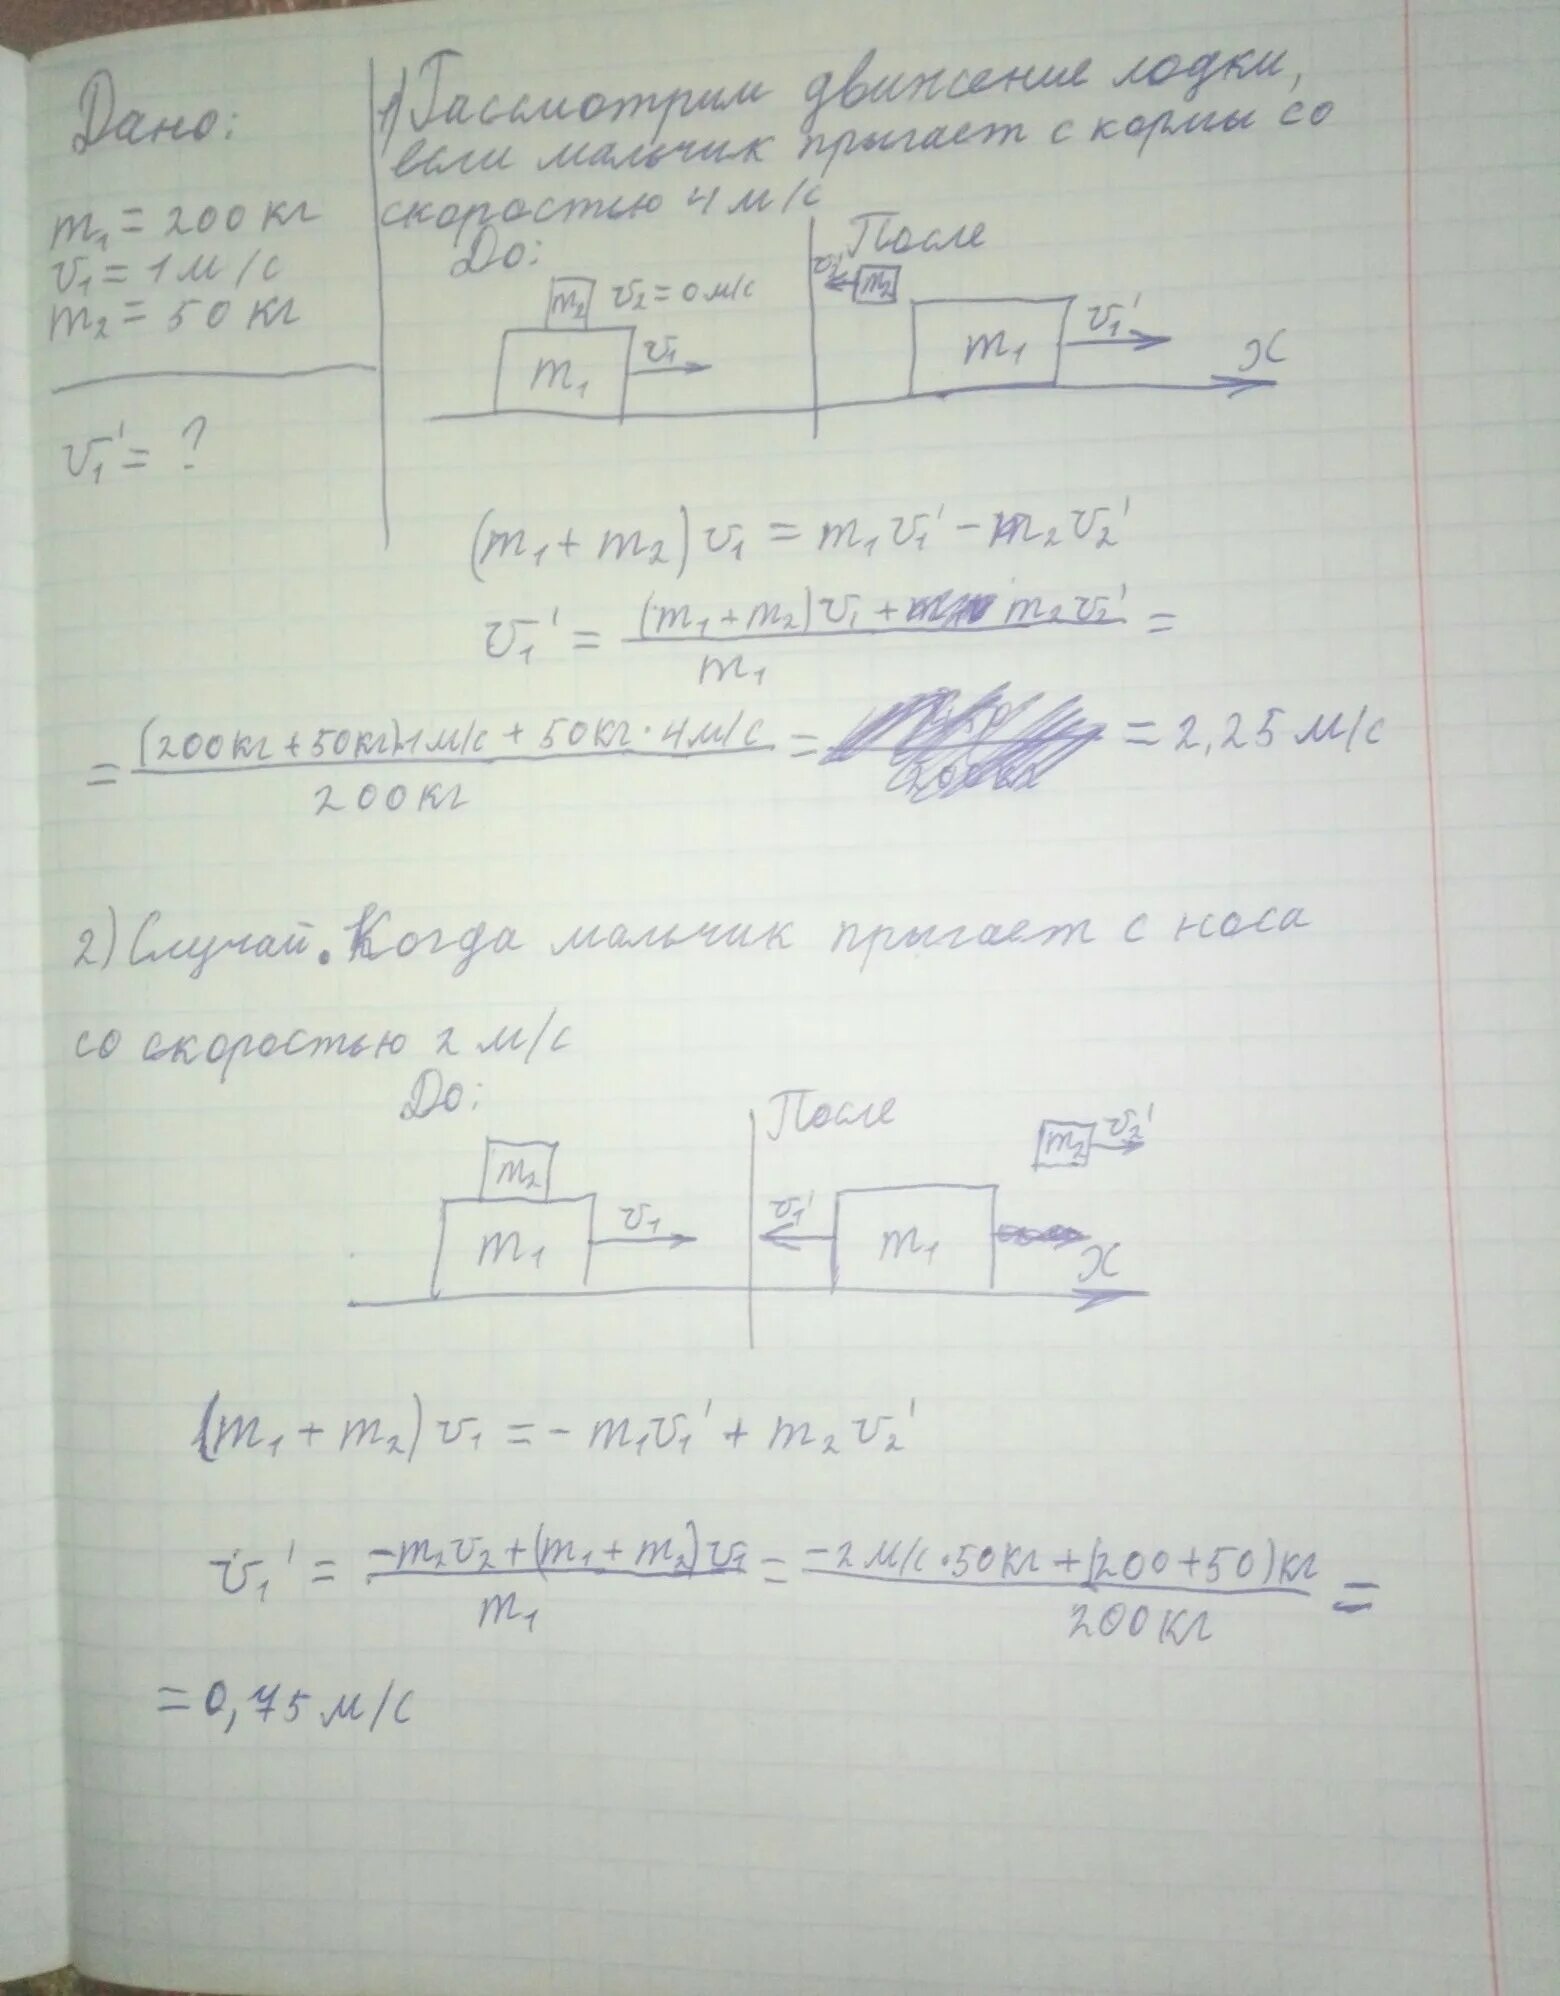 Дано:
m₁ = 200 кг
v₁ = 1 м/с
m₂ = 50 кг
v₁' = ?
1) Рассмотрим движение лодки,
если мальчик прыгает с кормы со
скоростью 4 м/с
До:
После
m₂ v₂ = 0 м/с
m₁ v₁
v₂' m₂
m₁ v₁'
x
(m₁ + m₂) v₁ = m₁v₁' - m₂v₂'
v₁' = ((m₁ + m₂)v₁ + m₂v₂')/m₁ =
= ((200 кг + 50 кг)·1 м/с + 50 кг · 4 м/с)/200 кг = = 2,25 м/с
2) Случай. Когда мальчик прыгает с носа
со скоростью 2 м/с
До:
После
m₂
m₁ v₁
m₂ v₂'
v₁' m₁
x
(m₁ + m₂) v₁ = - m₁v₁' + m₂v₂'
v₁' = (-m₂v₂ + (m₁ + m₂)v₁)/m₁ = (-2 м/с · 50 кг + (200 + 50) кг)/200 кг =
= 0,75 м/с